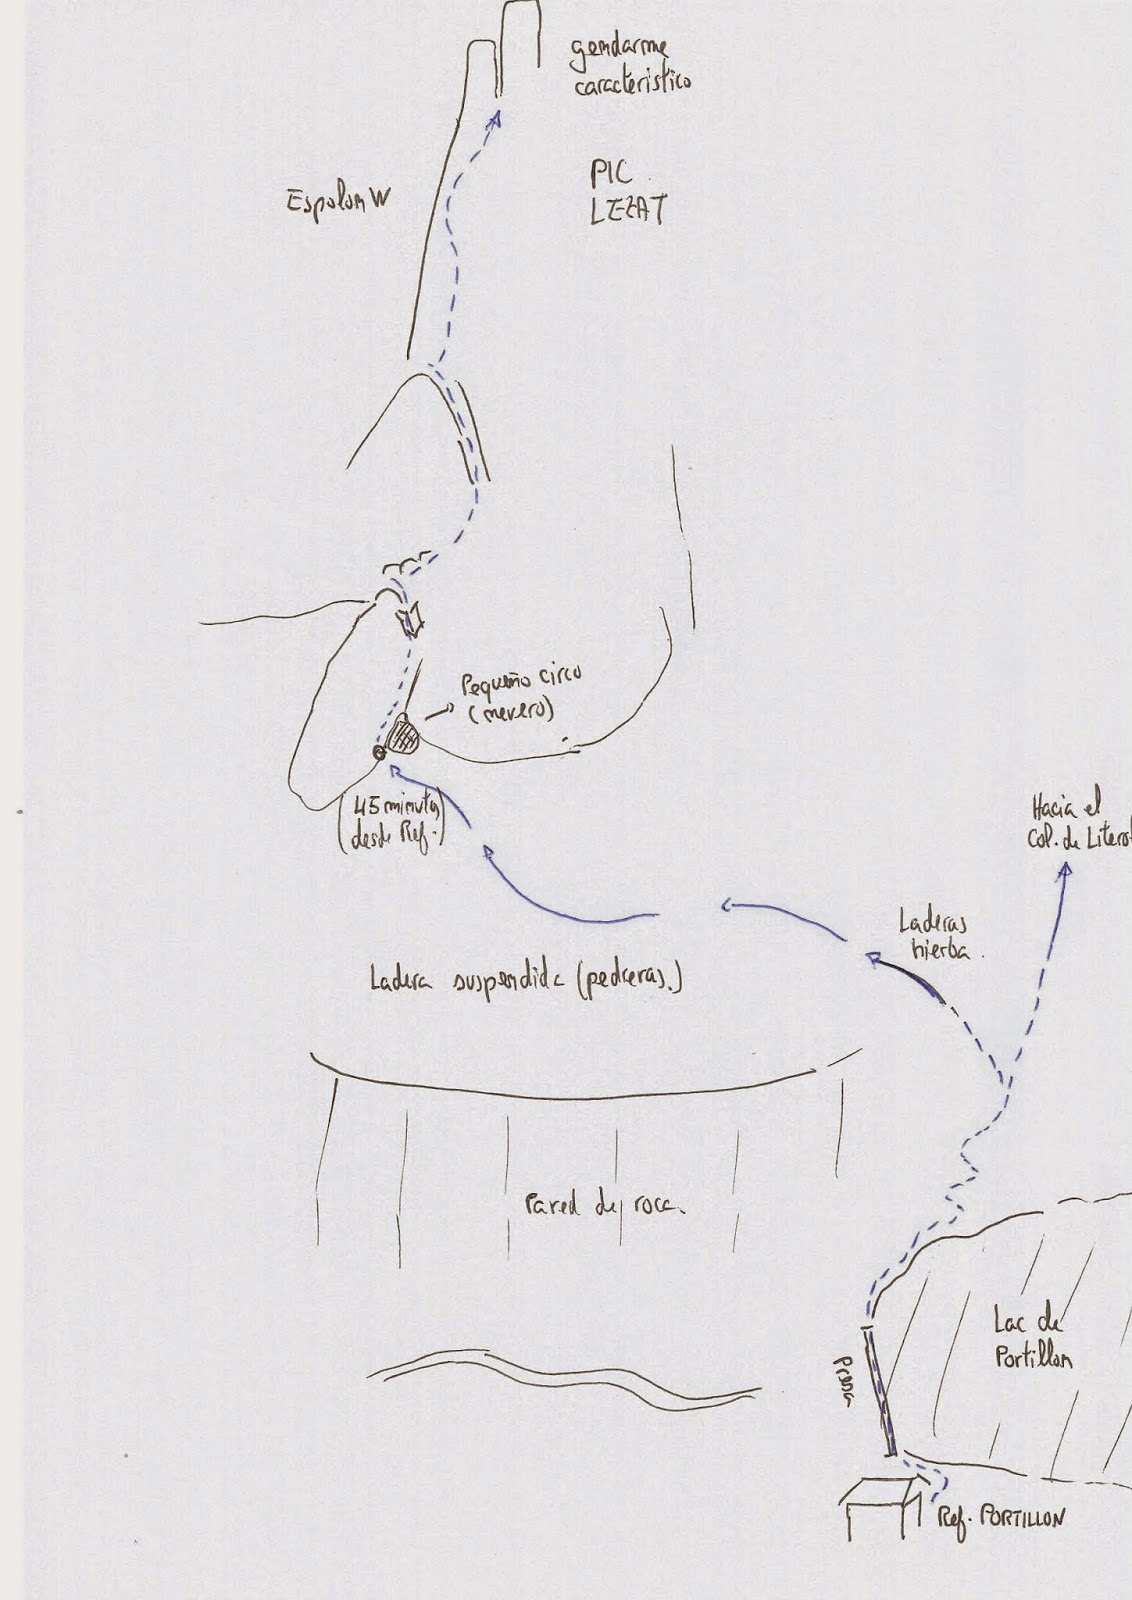 gendarme
caracteristico
PIC
LEZAT
Espolon W
Pequeño circo
(nevero)
(45 minutos
desde Ref.)
Hacia el
Col. de Litero
Laderas
hierba.
Ladera suspendida (pedreras.)
Pared de roca.
Lac de
Portillon
Presa
Ref. PORTILLON